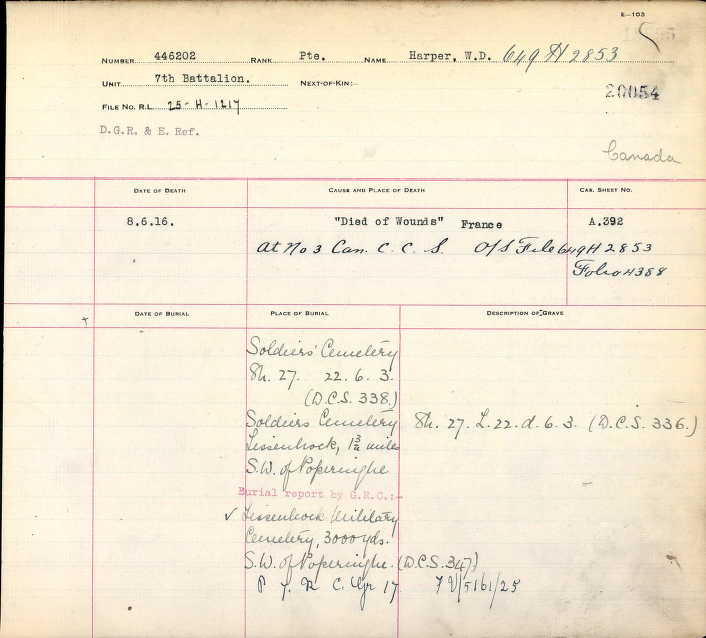 E—103
NUMBER 446202 RANK Pte. NAME Harper, W.D. 649 H 2853
UNIT 7th Battalion. NEXT-OF-KIN:—
20054
FILE NO. R.L. 25-H-1217
D.G.R. & E. Ref.
Canada
DATE OF DEATH CAUSE AND PLACE OF DEATH CAS. SHEET NO.
8.6.16. "Died of Wounds" France A.392
At No 3 Can. C. C. S. O/S File 649H 2853
Folio H388
DATE OF BURIAL PLACE OF BURIAL DESCRIPTION OF GRAVE
Soldiers' Cemetery
Sh. 27. 22. 6. 3.
(D.C.S. 338.)
Soldiers Cemetery Sh. 27. L. 22. d. 6. 3. (D.C.S. 336.)
Lissenhock, 1¾ miles
S.W. of Poperinghe
Burial report by G.R.C.:-
✓ Lissenhock Military
Cemetery, 3000 yds.
S.W. of Poperinghe. (D.C.S. 347)
P 7. R C. Gr 17